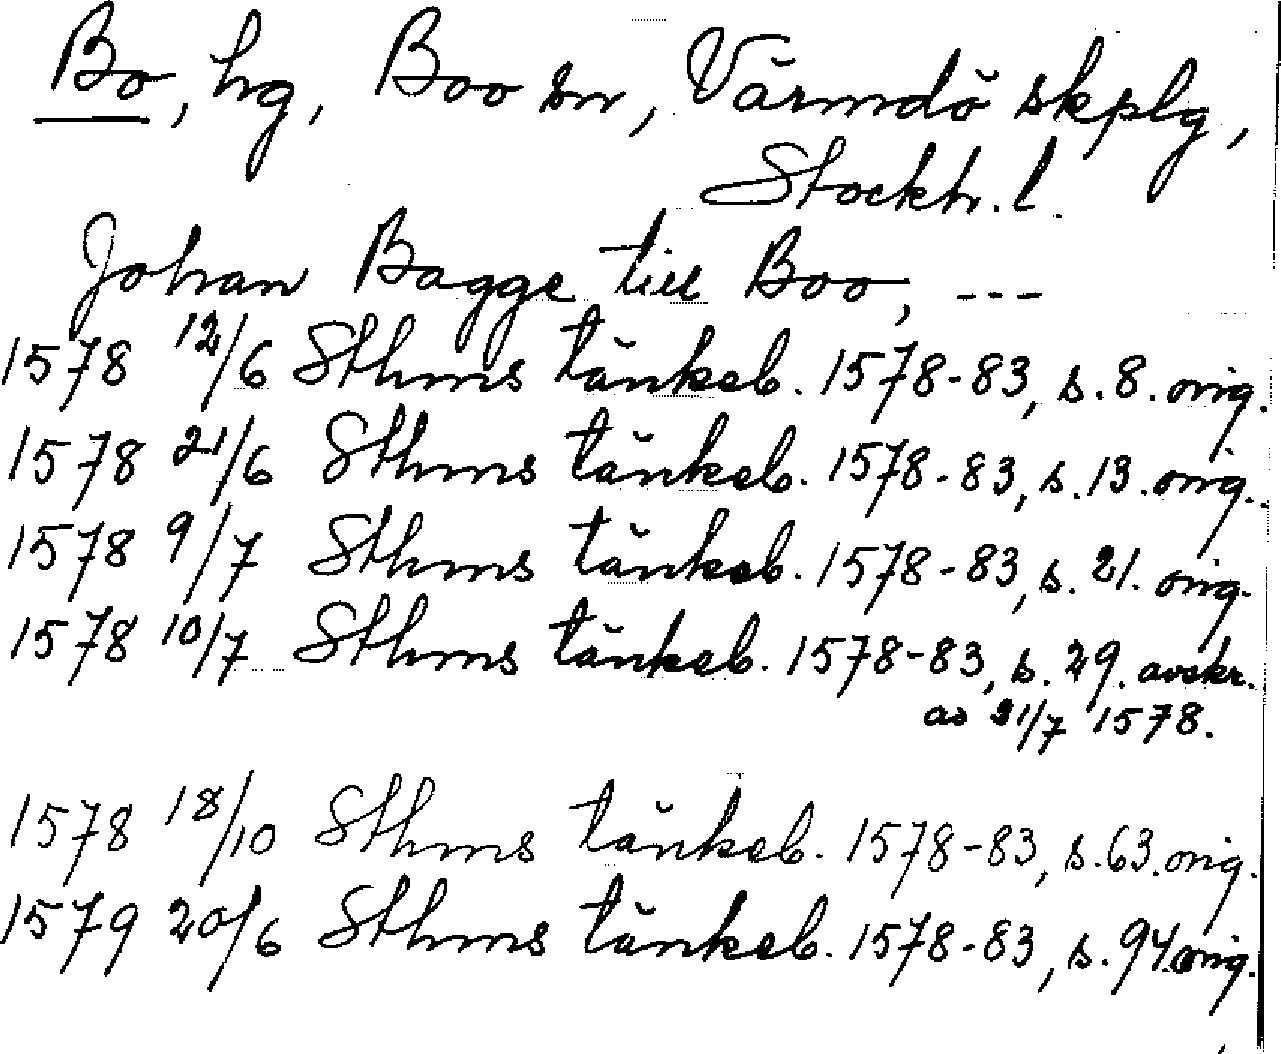 Bo, hg, Boo sn, Värmdö skplg,
Stockh. l.
Johan Bagge till Boo, ---
1578 12/6 Sthms tänkeb. 1578-83, s. 8. orig.
1578 21/6 Sthms tänkeb. 1578-83, s. 13. orig.
1578 9/7 Sthms tänkeb. 1578-83, s. 21. orig.
1578 10/7 Sthms tänkeb. 1578-83, s. 29. avskr.
av 21/7 1578.
1578 18/10 Sthms tänkeb. 1578-83, s. 63. orig.
1579 20/6 Sthms tänkeb. 1578-83, s. 94. orig.